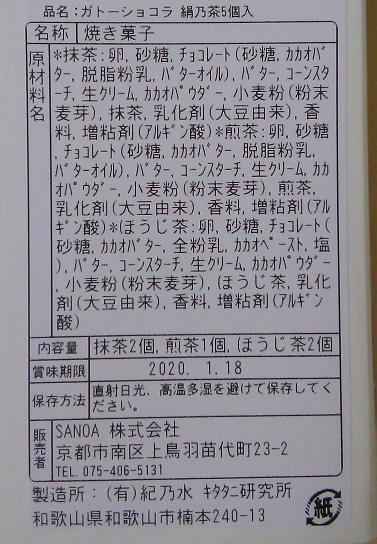 品名：ガトーショコラ 絹乃茶5個入
名称 焼き菓子
原材料名
*抹茶:卵,砂糖,チョコレート(砂糖,カカオバ
ター,脱脂粉乳,バターオイル),バター,コーンスタ
ーチ,生クリーム,カカオパウダー,小麦粉(粉末
麦芽),抹茶,乳化剤(大豆由来),香
料,増粘剤(アルギン酸)*煎茶:卵,砂糖
,チョコレート(砂糖,カカオバター,脱脂粉乳,
バターオイル),バター,コーンスターチ,生クリーム,カカ
オパウダー,小麦粉(粉末麦芽),煎茶,
乳化剤(大豆由来),香料,増粘剤(アル
ギン酸)*ほうじ茶:卵,砂糖,チョコレート(
砂糖,カカオバター,全粉乳,カカオペースト,塩
),バター,コーンスターチ,生クリーム,カカオパウダー
,小麦粉(粉末麦芽),ほうじ茶,乳化
剤(大豆由来),香料,増粘剤(アルギン
酸)
内容量 抹茶2個,煎茶1個,ほうじ茶2個
賞味期限 2020. 1.18
保存方法 直射日光、高温多湿を避けて保存してく
ださい。
販売者
SANOA 株式会社
京都市南区上鳥羽苗代町23-2
TEL.075-406-5131
製造所：(有)紀乃水 キタタニ研究所
和歌山県和歌山市楠本240-13
紙